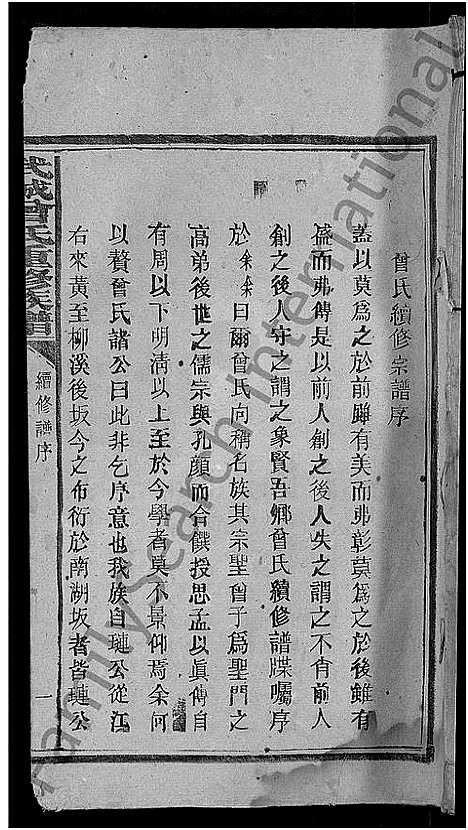 曾氏續修宗譜序
蓋以莫爲之於前雖有美而弗彰莫爲之於後雖有
盛而弗傳是以前人創之後人失之謂之不肖前人
創之後人守之謂之象賢吾鄉曾氏續修譜牒囑序
於余余曰爾曾氏向稱名族其宗聖曾子爲聖門之
高弟後世之儒宗與孔顏而合饌授思孟以眞傳自
有周以下明淸以上至於今學者莫不景仰焉余何
以贅曾氏諸公曰此非乞序意也我族自璉公從江
右來黃至柳溪後坂今之布衍於南湖坂者皆璉公
武城曾氏重修族譜
續修譜序
一
FamilySearch International